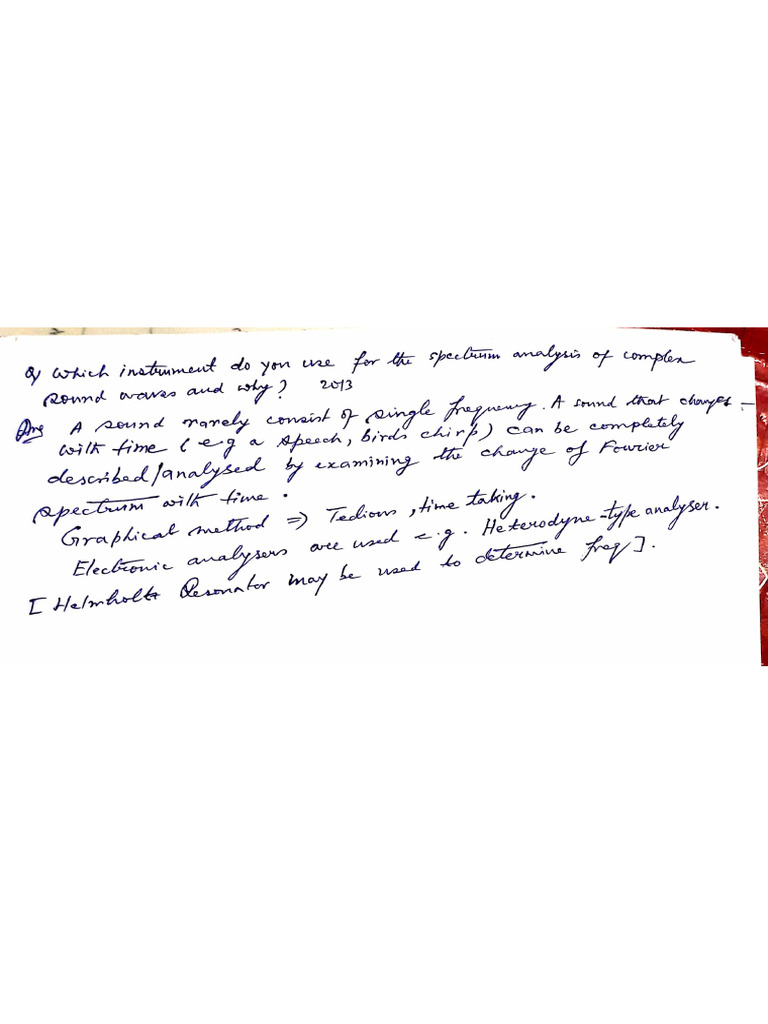 Q/ Which instrument do you use for the spectrum analysis of complex
sound waves and why? 2013
Ans A sound rarely consist of single frequency. A sound that changes
with time (e.g a speech, birds chirp) can be completely
described/analysed by examining the change of Fourier
spectrum with time.
Graphical method => Tedious, time taking.
Electronic analysers are used e.g. Heterodyne-type analyser.
[Helmholtz Resonator may be used to determine freq].